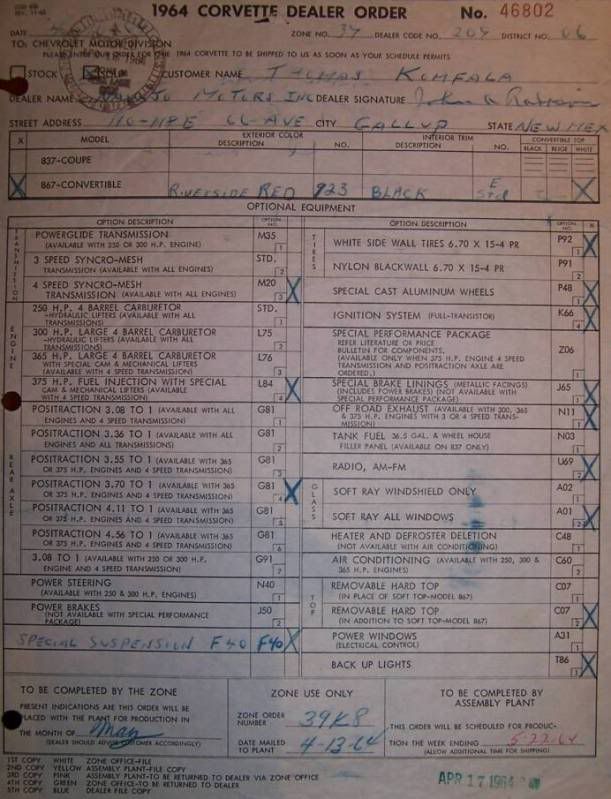 1964 CORVETTE DEALER ORDER No. 46802
DATE ZONE NO. 39 DEALER CODE NO. 204 DISTRICT NO. 06
TO: CHEVROLET MOTOR DIVISION
PLEASE ENTER OUR ORDER FOR ONE 1964 CORVETTE TO BE SHIPPED TO US AS SOON AS YOUR SCHEDULE PERMITS
STOCK CUSTOMER NAME THOMAS KOMFALA
DEALER NAME MOTORS INC DEALER SIGNATURE
STREET ADDRESS 110-118 E 66-AVE CITY GALLUP STATE NEW MEX
X MODEL EXTERIOR COLOR INTERIOR TRIM CONVERTIBLE TOP
DESCRIPTION NO. DESCRIPTION NO. BLACK BEIGE WHITE
837-COUPE
X 867-CONVERTIBLE RIVERSIDE RED 923 BLACK STD X
OPTIONAL EQUIPMENT
OPTION DESCRIPTION OPTION NO. X
TRANSMISSION
POWERGLIDE TRANSMISSION M35
(AVAILABLE WITH 250 OR 300 H.P. ENGINE) 1
3 SPEED SYNCRO-MESH STD.
TRANSMISSION (AVAILABLE WITH ALL ENGINES) 2
4 SPEED SYNCRO-MESH M20 X
TRANSMISSION (AVAILABLE WITH ALL ENGINES) 3
ENGINE
250 H.P. 4 BARREL CARBURETOR STD.
-HYDRAULIC LIFTERS (AVAILABLE WITH ALL
TRANSMISSIONS) 1
300 H.P. LARGE 4 BARREL CARBURETOR L75
-HYDRAULIC LIFTERS (AVAILABLE WITH ALL
TRANSMISSIONS) 2
365 H.P. LARGE 4 BARREL CARBURETOR L76
WITH SPECIAL CAM & MECHANICAL LIFTERS
(AVAILABLE WITH 4 SPEED TRANSMISSION) 3
375 H.P. FUEL INJECTION WITH SPECIAL L84 X
CAM & MECHANICAL LIFTERS (AVAILABLE
WITH 4 SPEED TRANSMISSION) 4
REAR AXLE
POSITRACTION 3.08 TO 1 (AVAILABLE WITH ALL G81
ENGINES AND 4 SPEED TRANSMISSION) 1
POSITRACTION 3.36 TO 1 (AVAILABLE WITH ALL G81
ENGINES AND ALL TRANSMISSIONS) 2
POSITRACTION 3.55 TO 1 (AVAILABLE WITH 365 G81
OR 375 H.P. ENGINES AND 4 SPEED TRANSMISSION) 3
POSITRACTION 3.70 TO 1 (AVAILABLE WITH 365 G81 X
OR 375 H.P. ENGINES AND 4 SPEED TRANSMISSION) 4
POSITRACTION 4.11 TO 1 (AVAILABLE WITH 365 G81
OR 375 H.P. ENGINES AND 4 SPEED TRANSMISSION) 5
POSITRACTION 4.56 TO 1 (AVAILABLE WITH 365 G81
OR 375 H.P. ENGINES AND 4 SPEED TRANSMISSION) 6
3.08 TO 1 (AVAILABLE WITH 250 OR 300 H.P. G91
ENGINE AND 4 SPEED TRANSMISSION) 2
POWER STEERING N40
(AVAILABLE WITH 250 & 300 H.P. ENGINES) 1
POWER BRAKES J50
(NOT AVAILABLE WITH SPECIAL PERFORMANCE
PACKAGE) 2
SPECIAL SUSPENSION F40 F40 X
OPTION DESCRIPTION OPTION NO. X
TIRES
WHITE SIDE WALL TIRES 6.70 X 15-4 PR P92 X
NYLON BLACKWALL 6.70 X 15-4 PR P91
SPECIAL CAST ALUMINUM WHEELS P48 X
IGNITION SYSTEM (FULL-TRANSISTOR) K66 X
SPECIAL PERFORMANCE PACKAGE Z06
REFER LITERATURE OR PRICE
BULLETIN FOR COMPONENTS.
(AVAILABLE ONLY WHEN 375 H.P. ENGINE 4 SPEED
TRANSMISSION AND POSITRACTION AXLE ARE
ORDERED.)
SPECIAL BRAKE LININGS (METALLIC FACINGS) J65 X
(INCLUDES POWER BRAKES) (NOT AVAILABLE WITH
SPECIAL PERFORMANCE PACKAGE)
OFF ROAD EXHAUST (AVAILABLE WITH 300, 365 N11 X
& 375 H.P. ENGINES WITH 3 OR 4 SPEED TRANS-
MISSION)
TANK FUEL 36.5 GAL. & WHEEL HOUSE N03
FILLER PANEL (AVAILABLE ON 837 ONLY)
RADIO, AM-FM U69 X
GLASS
SOFT RAY WINDSHIELD ONLY A02
SOFT RAY ALL WINDOWS A01 X
HEATER AND DEFROSTER DELETION C48
(NOT AVAILABLE WITH AIR CONDITIONING)
AIR CONDITIONING (AVAILABLE WITH 250, 300 & C60
365 H.P. ENGINES) 2
TOP
REMOVABLE HARD TOP C07
(IN PLACE OF SOFT TOP-MODEL 867) 1
REMOVABLE HARD TOP C07 X
(IN ADDITION TO SOFT TOP-MODEL 867) 2
POWER WINDOWS A31
(ELECTRICAL CONTROL) 1
BACK UP LIGHTS T86 X
TO BE COMPLETED BY THE ZONE
PRESENT INDICATIONS ARE THIS ORDER WILL BE
PLACED WITH THE PLANT FOR PRODUCTION IN
THE MONTH OF May
(DEALER SHOULD ADVISE CUSTOMER ACCORDINGLY)
ZONE USE ONLY
ZONE ORDER NUMBER 39K8
DATE MAILED TO PLANT 4-13-64
TO BE COMPLETED BY
ASSEMBLY PLANT
THIS ORDER WILL BE SCHEDULED FOR PRODUC-
TION THE WEEK ENDING 5-22-64
(ALLOW ADDITIONAL TIME FOR SHIPPING)
1ST COPY WHITE ZONE OFFICE-FILE
2ND COPY YELLOW ASSEMBLY PLANT-FILE COPY
3RD COPY PINK ASSEMBLY PLANT-TO BE RETURNED TO DEALER VIA ZONE OFFICE
4TH COPY GREEN ZONE OFFICE-TO BE RETURNED TO DEALER
5TH COPY BLUE DEALER FILE COPY
APR 17 1964